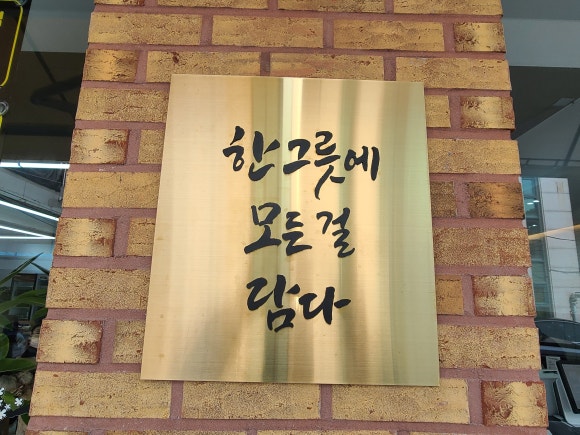 한그릇에
모든걸
담다